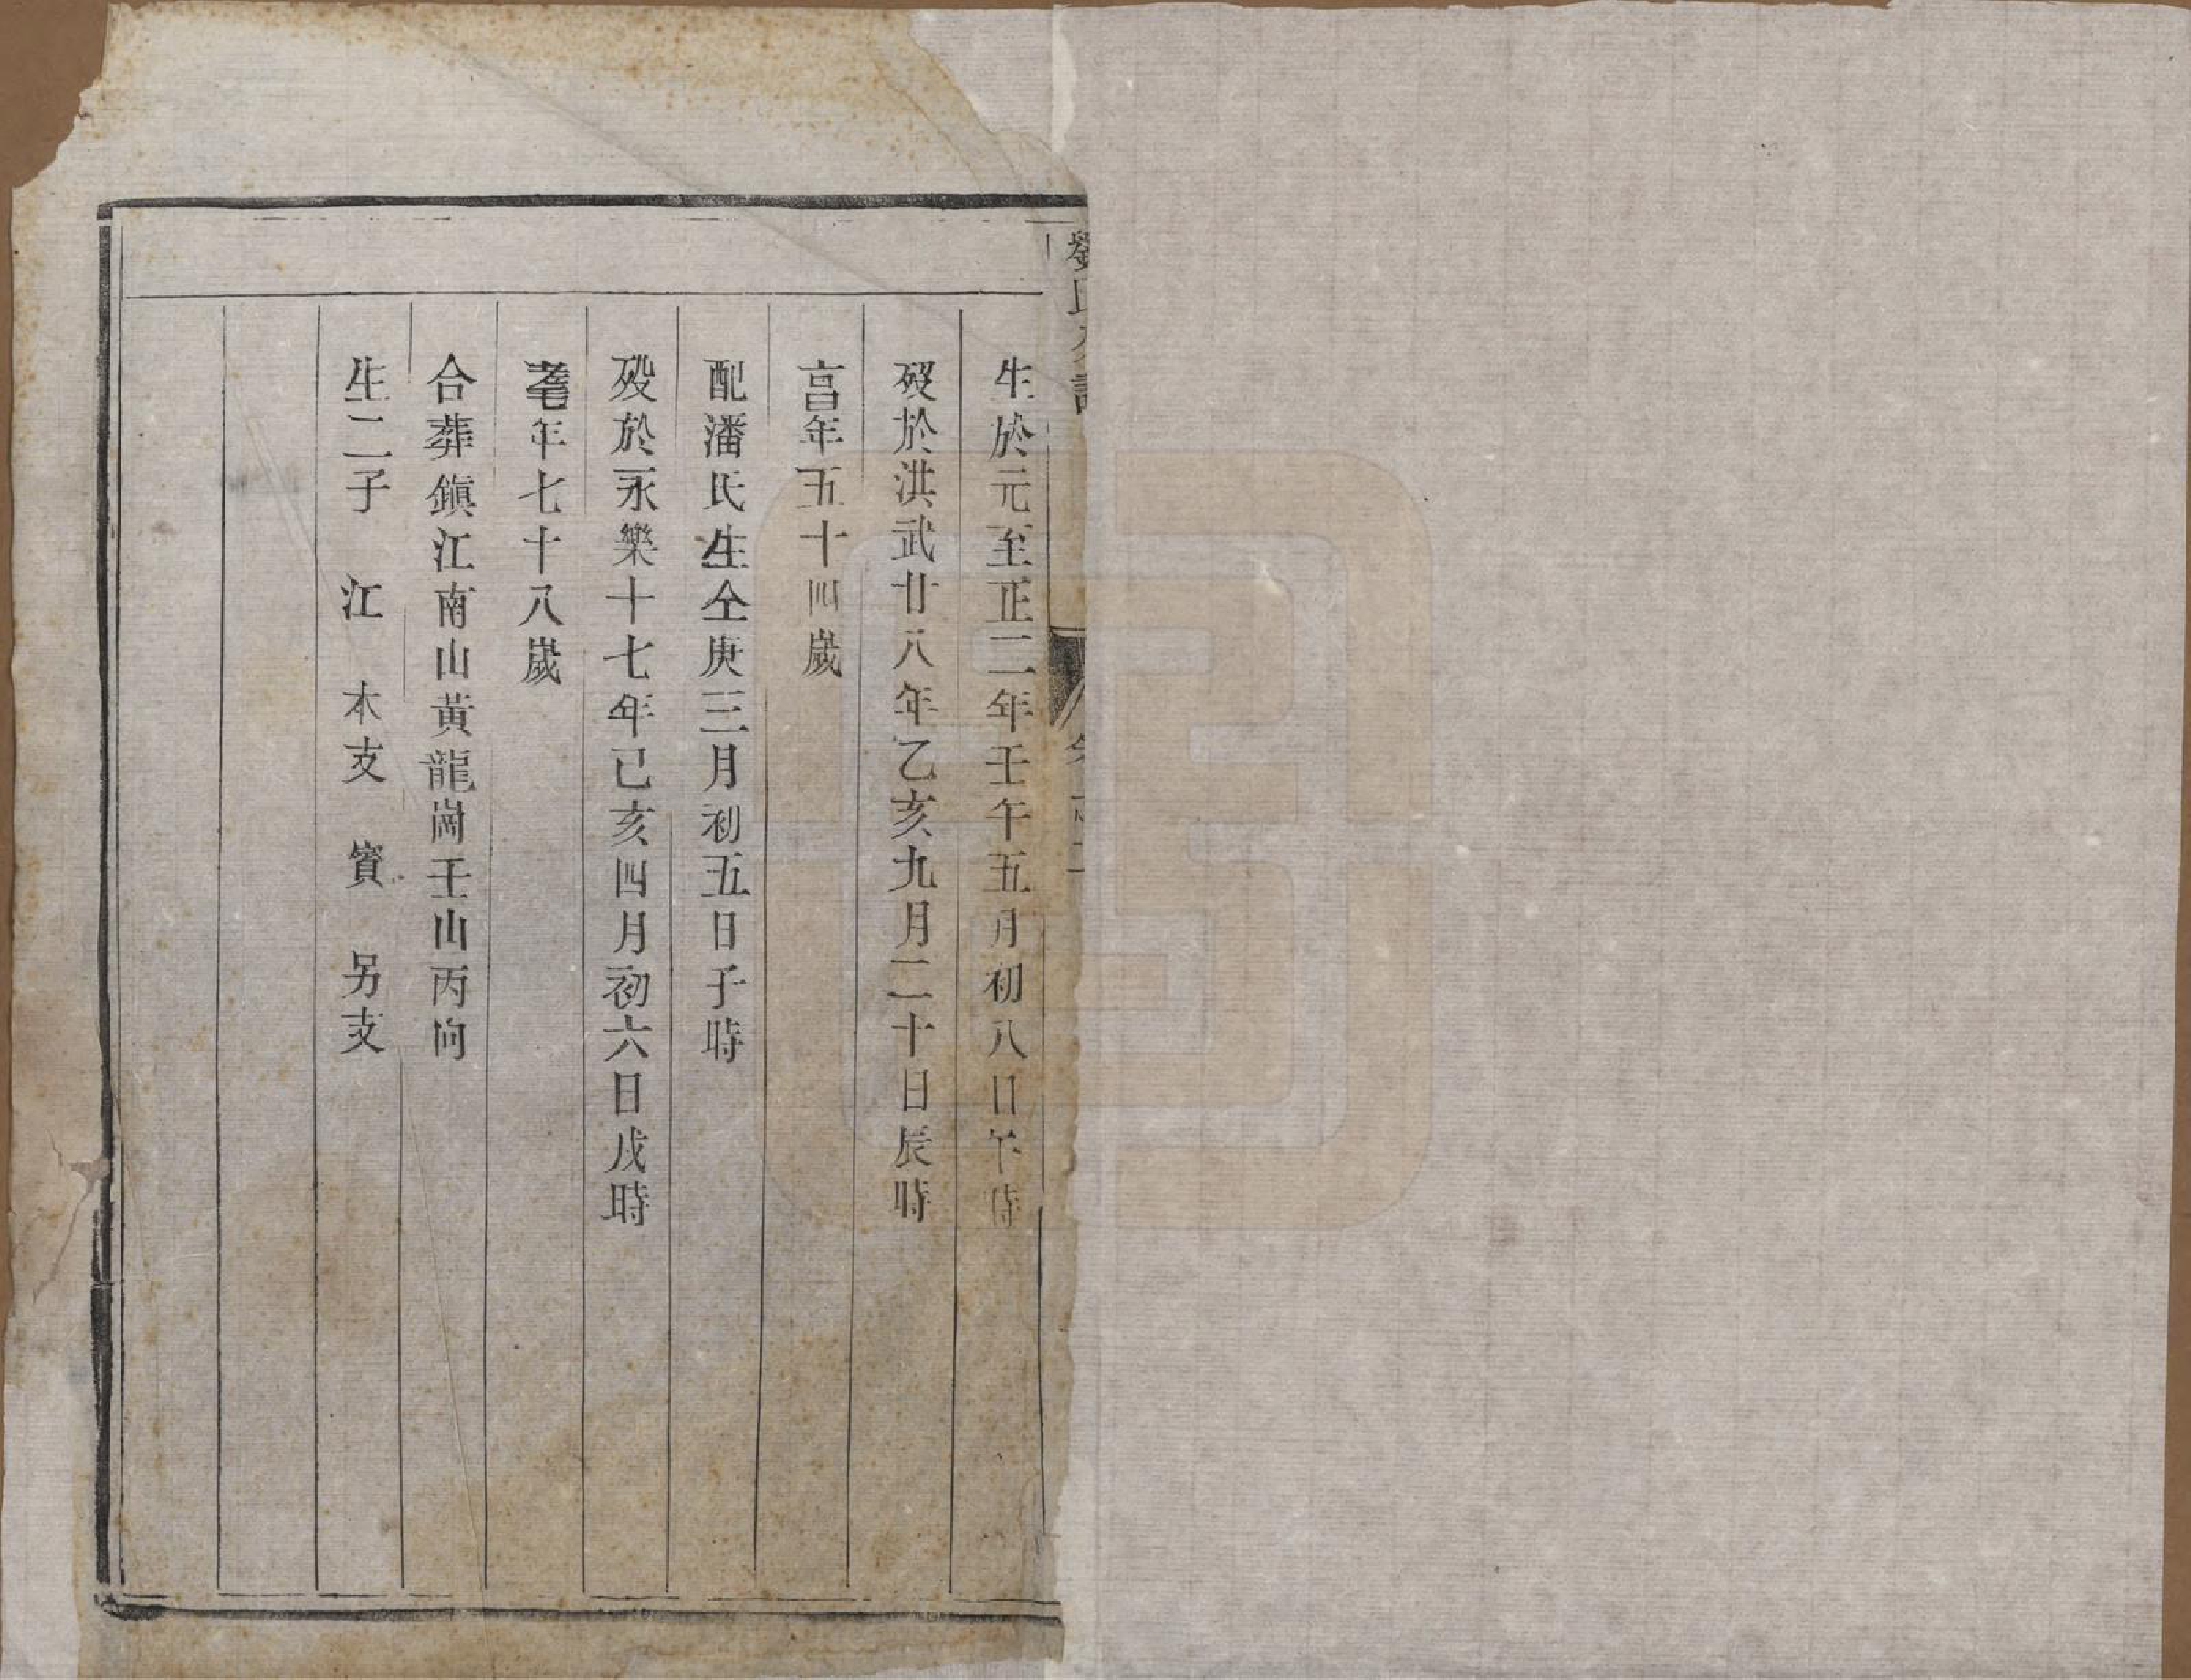 劉氏
生於元至正二年壬午五月初八日午時
歿於洪武廿八年乙亥九月二十日辰時
亯年五十四歲
配潘氏生仝庚三月初五日子時
歿於永樂十七年己亥四月初六日戌時
耄年七十八歲
合葬鎮江南山黃龍崗壬山丙向
生二子 江 木支 賓 另支